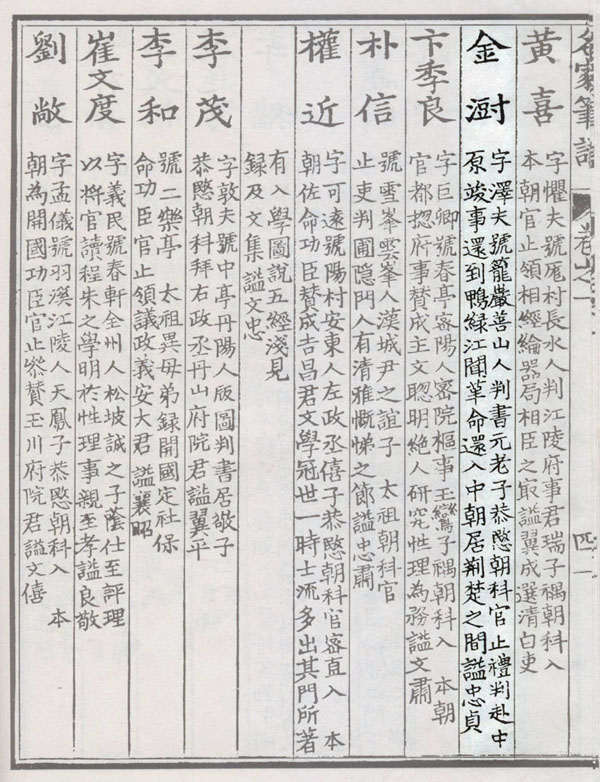 名家筆譜 卷之一 四一
黃喜
字懼夫號厖村長水人判江陵府事君瑞子禑朝科入
本朝官止領相經綸器局相臣之最諡翼成選清白吏
金澍
字澤夫號籠巖善山人判書元老子恭愍朝科官止禮判赴中
原竣事還到鴨綠江聞革命還入中朝居荆楚之間諡忠貞
卞季良
字巨卿號春亭密陽人密院樞事玉蘭子禑朝科入 本朝
官都揔府事賛成主文聦明絶人研究性理為務諡文肅
朴信
號雪峯雲峯人漢城尹之誼子 太祖朝科官
止吏判圃隐門人有清雅慨悌之節諡忠肅
權近
字可遠號陽村安東人左政丞僖子恭愍朝科官密直入 本
朝佐命功臣賛成吉昌君文學冠世一時士流多出其門所著
有入學圖說五經淺見
錄及文集諡文忠
李茂
字敦夫號中亭丹陽人版圖判書居敬子
恭愍朝科拜右政丞丹山府院君諡翼平
李和
號二樂亭 太祖異母弟録開國定社保
命功臣官止領議政義安大君 諡襄昭
崔文度
字義民號春軒全州人松坡誠之子蔭仕至評理
以將官讀程朱之學明於性理事親至孝諡良敬
劉敞
字孟儀號羽溪江陵人天鳳子恭愍朝科入 本
朝為開國功臣官止叅賛玉川府院君諡文僖